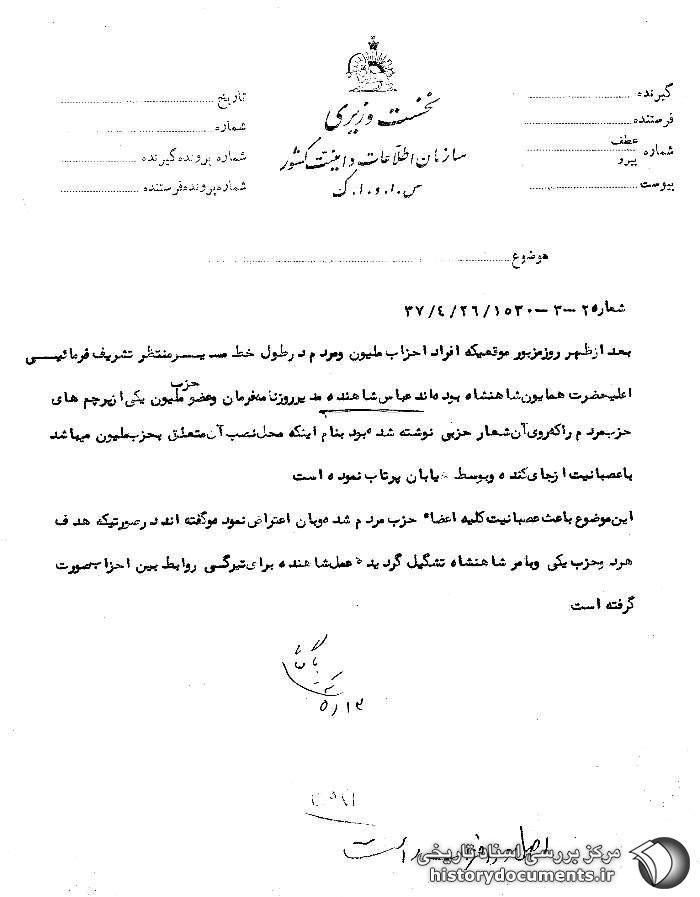 نخست وزیری
سازمان اطلاعات و امنیت کشور
س.ا.و.ا.ک
گیرنده
فرستنده
شماره عطف
پیرو
پیوست
تاریخ
شماره
شماره پرونده گیرنده
شماره پرونده فرستنده
موضوع
شماره ۲۵-۳-۱۵۳۰/۲۶/۴/۳۷
بعد از ظهر روز مزبور موقعیکه افراد احزاب ملیون و مردم در طول خط مسیر منتظر تشریف فرمائی
اعلیحضرت همایون شاهنشاه بوده‌اند عباس شاهنده مدیر روزنامه فرمان و عضو حزب ملیون یکی از پرچم های
حزب مردم را که روی آن شعار حزبی نوشته شده بود بنام اینکه محل نصب آن متعلق بحزب ملیون میباشد
با عصبانیت از جای کنده و بوسط خیابان پرتاب نموده است
این موضوع باعث عصبانیت کلیه اعضاء حزب مردم شده و بان اعتراض نموده و گفته اند در صورتیکه هدف
هر دو حزب یکی و بامر شاهنشاه تشکیل گردیده عمل شاهنده برای تیرگی روابط بین احزاب صورت
گرفته است
۵/۱۳
اصل در است
مرکز بررسی اسناد تاریخی
historydocuments.ir